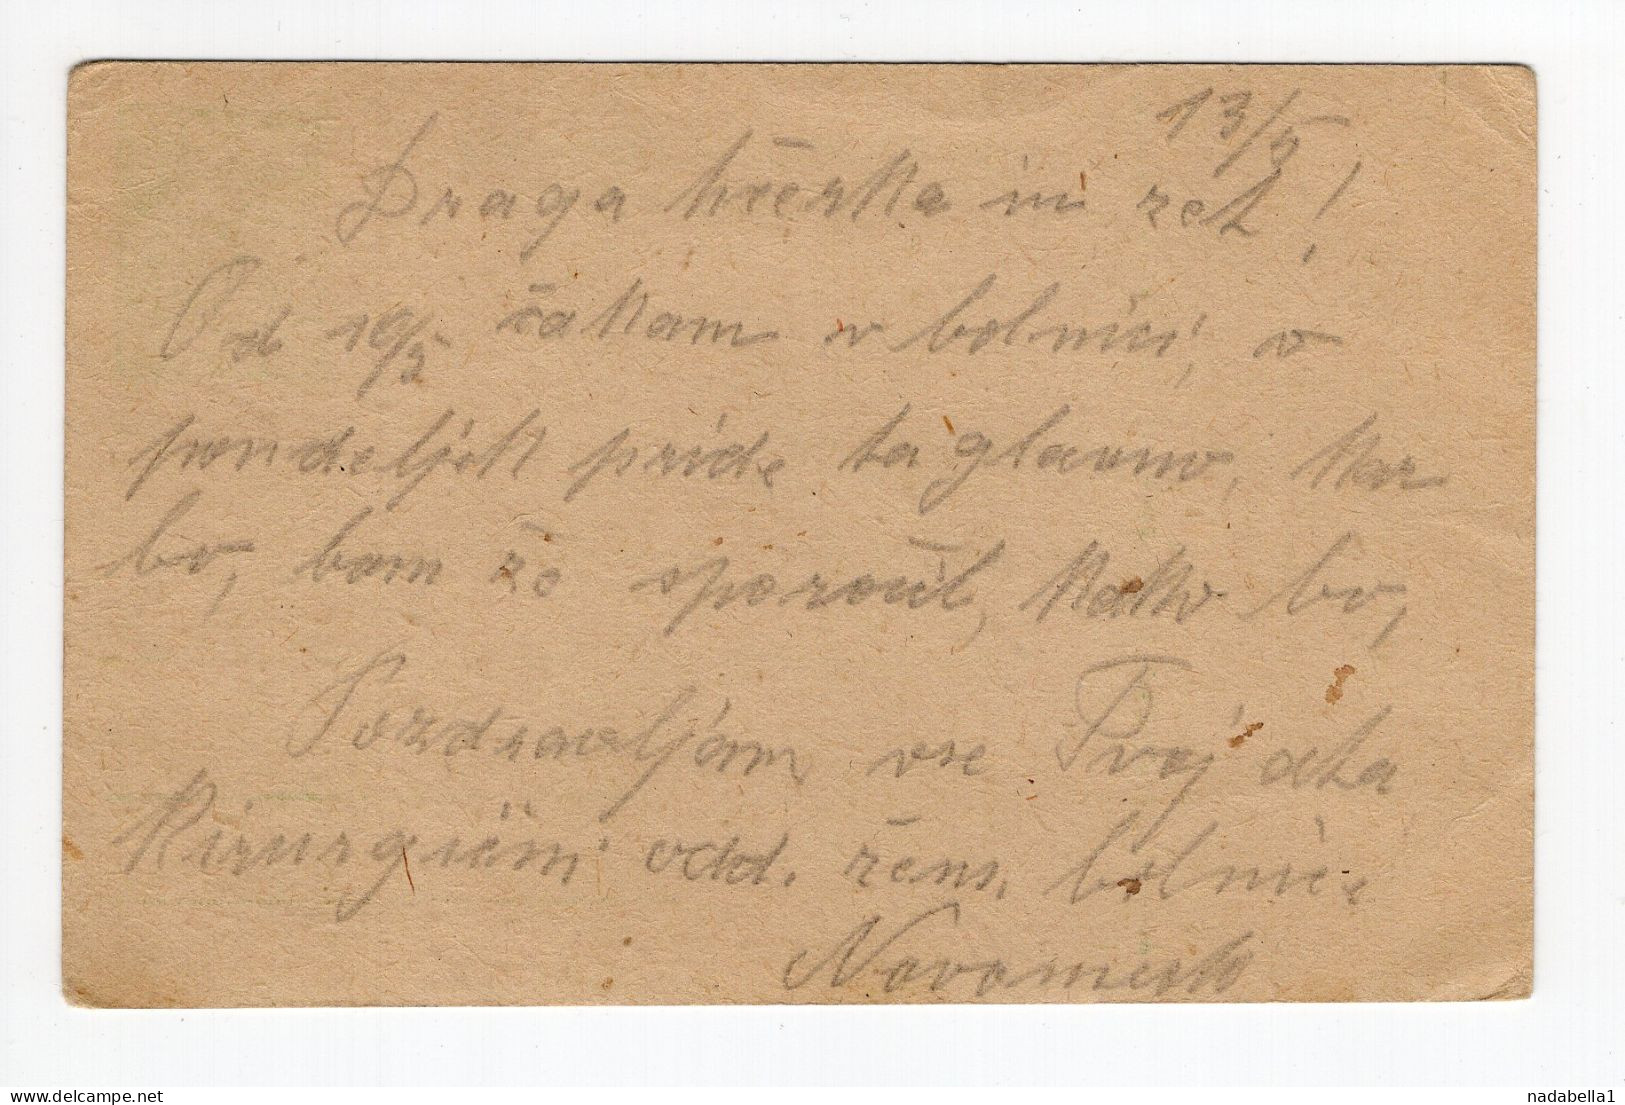 13/5
Draga hčerka in zet!
Od 10/5 čakam v bolnici, v
pondeljek pride ta glavno, kar
bo, bom že sporočil, kako bo,
Pozdravljam vse Tvoj ata
Kirurgični odd. žens. bolnice
Novomesto
delcampe.net
nadabella1